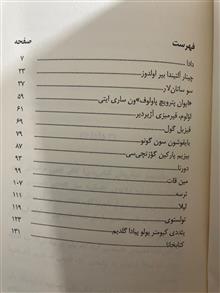 فهرست صفحه
دادا ۷
چینار آلتیندا بیر اولدوز ۲۳
سو ساتان‌لار ۳۷
«ایوان پترویچ پاولوف»ون ساری ایتی ۵۹
اؤلوم، قیرمیزی آژیردیر ۶۱
قیزیل گول ۶۹
بایقوشون سون گونو ۷۹
بیزیم پارکین گؤزتچی‌سی ۸۷
دورنا ۹۳
مین قات ۱۰۷
ترسه ۱۱۱
لیلا ۱۱۹
تولستوی ۱۲۳
یئددی کیومتر یولو پیادا گلدیم ۱۳۱
کتابخانا